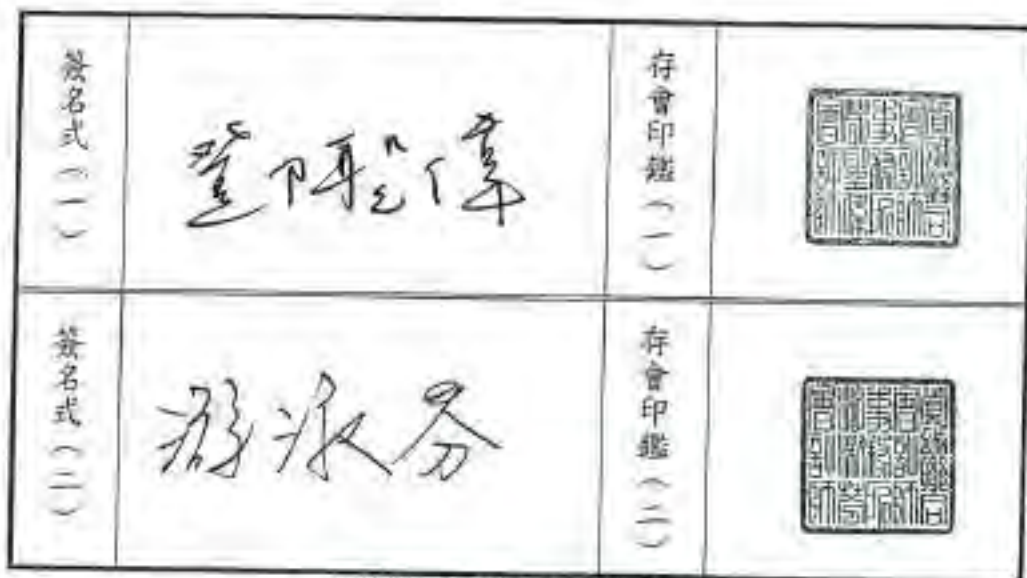 簽名式(一)
鄧聖偉
存會印鑑(一)
簽名式(二)
游淑芬
存會印鑑(二)